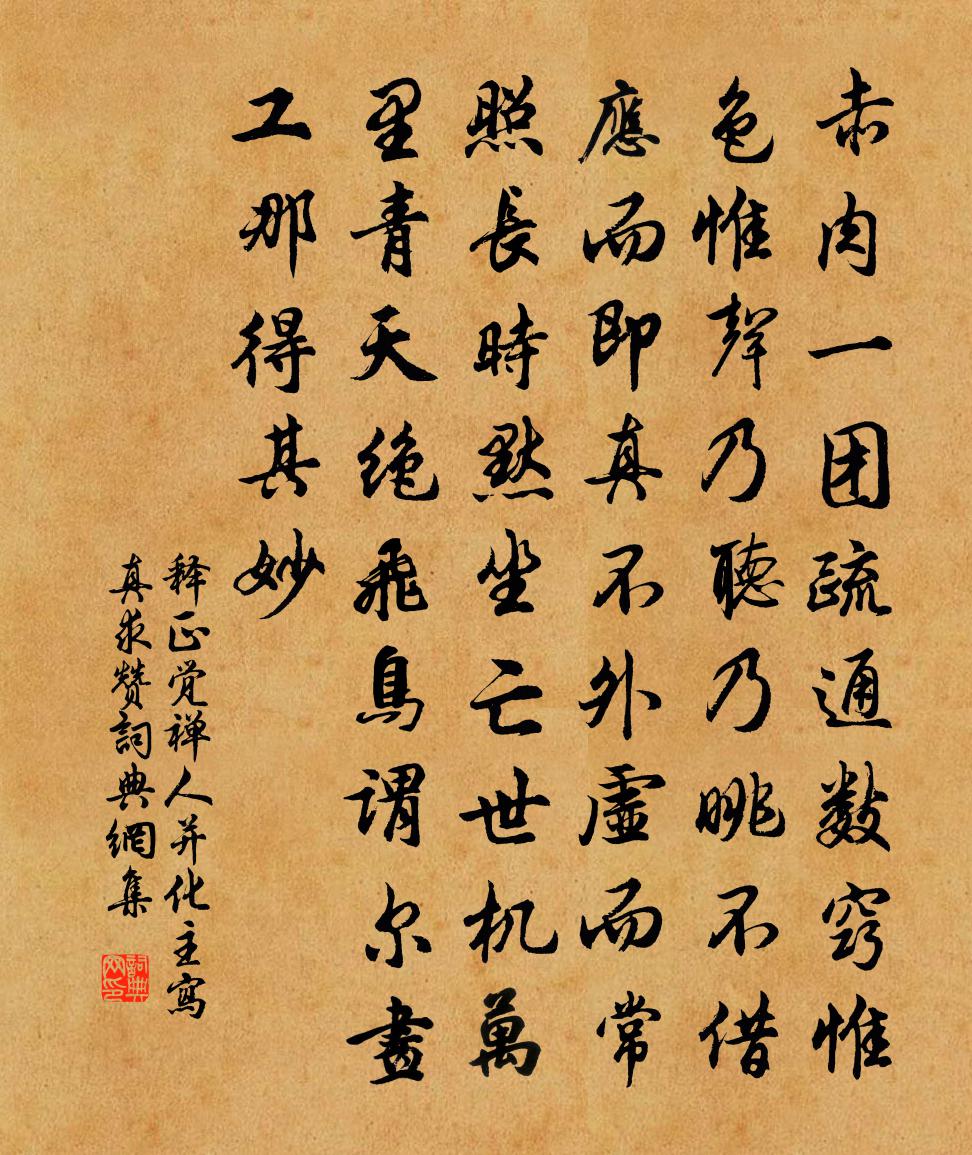 赤肉一团疏通数窍惟
色惟聲乃聽乃眺不借
應而即真不外虛而常
照長時默坐亡世机萬
里青天绝飛鳥謂尔畫
工那得其妙
释正觉禅人并化主寫
真求赞詞典網集
詞典
网印